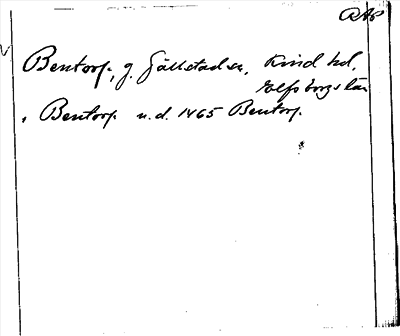 RAP
Bentorp, g. Gällstad sn, Kind hd,
Elfsborgs län
Bentorp u.d. 1465 Bentorp.